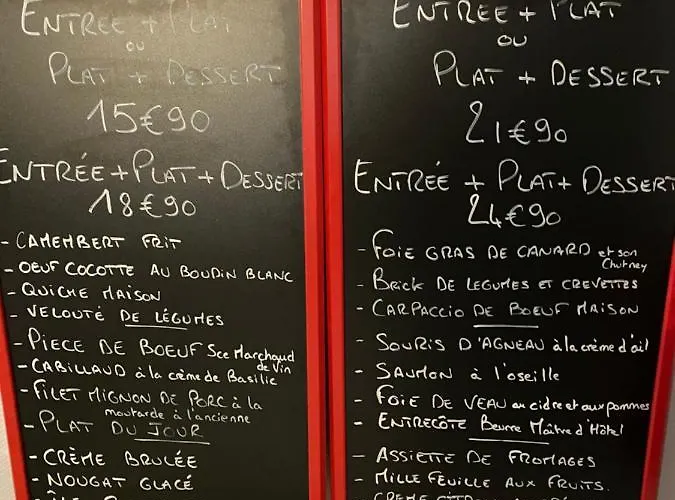 ENTRÉE + PLAT
OU
PLAT + DESSERT
15€90
ENTRÉE + PLAT + DESSERT
18€90
- CAMEMBERT FRIT
- OEUF COCOTTE AU BOUDIN BLANC
- QUICHE MAISON
- VELOUTÉ DE LÉGUMES
- PIECE DE BOEUF Sce Marchand
de Vin
- CABILLAUD à la crème de Basilic
- FILET MIGNON DE PORC à la
moutarde à l'ancienne
- PLAT DU JOUR
- CRÈME BRULÉE
- NOUGAT GLACÉ
ENTRÉE + PLAT
OU
PLAT + DESSERT
21€90
ENTRÉE + PLAT + DESSERT
24€90
- FOIE GRAS DE CANARD et son
Chutney
- BRICK DE LEGUMES ET CREVETTES
- CARPACCIO DE BOEUF MAISON
- SOURIS D'AGNEAU à la crème d'ail
- SAUMON à l'oseille
- FOIE DE VEAU au cidre et aux pommes
- ENTRECÔTE Beurre Maître d'Hôtel
- ASSIETTE DE FROMAGES
- MILLE FEUILLE AUX FRUITS.